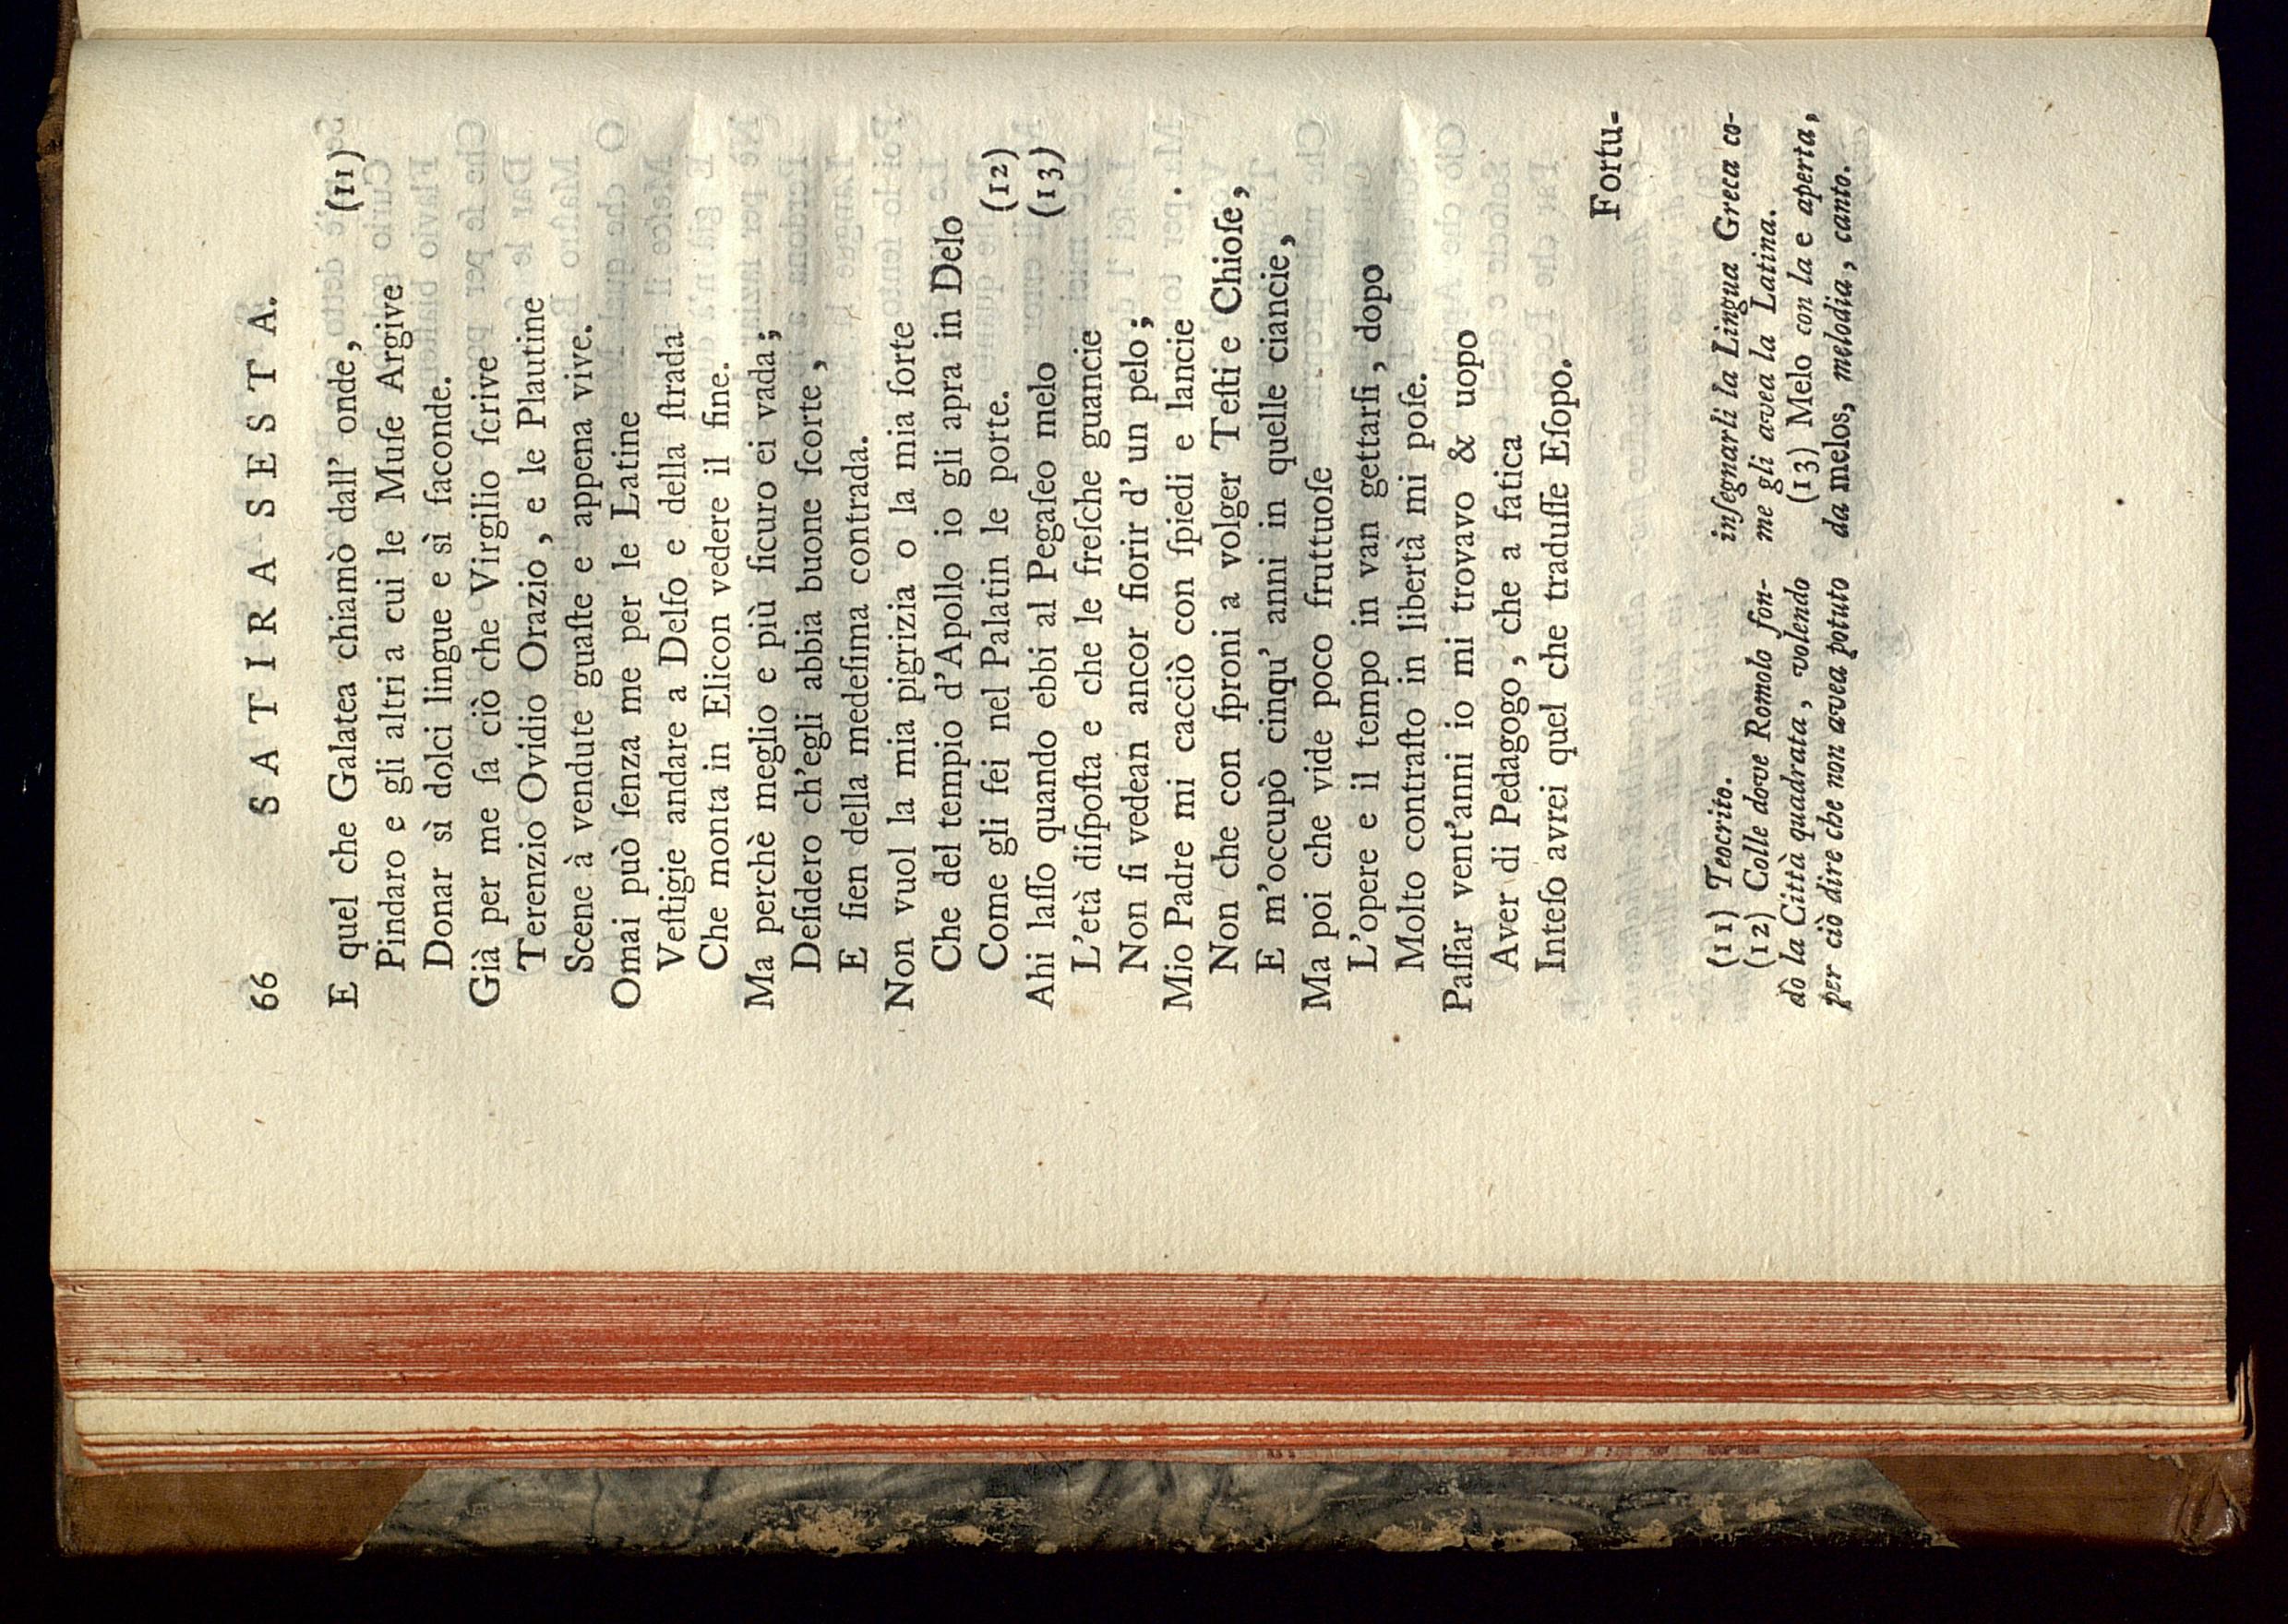 66 SATIRA SESTA.
E quel che Galatea chiamò dall' onde, (11)
Pindaro e gli altri a cui le Muſe Argive
Donar sì dolci lingue e sì faconde.
Già per me ſa ciò che Virgilio ſcrive
Terenzio Ovidio Orazio, e le Plautine
Scene à vendute guaſte e appena vive.
Omai può ſenza me per le Latine
Veſtigie andare a Delfo e della ſtrada
Che monta in Elicon vedere il fine.
Ma perchè meglio e più ſicuro ei vada;
Deſidero ch'egli abbia buone ſcorte,
E ſien della medeſima contrada.
Non vuol la mia pigrizia o la mia ſorte
Che del tempio d'Apollo io gli apra in Delo
Come gli fei nel Palatin le porte. (12)
Ahi laſſo quando ebbi al Pegaſeo melo (13)
L'età diſpoſta e che le freſche guancie
Non ſi vedean ancor fiorir d' un pelo;
Mio Padre mi cacciò con ſpiedi e lancie
Non che con ſproni a volger Teſti e Chioſe,
E m'occupò cinqu' anni in quelle ciancie,
Ma poi che vide poco fruttuoſe
L'opere e il tempo in van gettarſi, dopo
Molto contraſto in libertà mi poſe.
Paſſar vent'anni io mi trovavo & uopo
Aver di Pedagogo, che a fatica
Inteſo avrei quel che traduſſe Eſopo.
Fortu-
(11) Teocrito.
(12) Colle dove Romolo fon-
dò la Città quadrata, volendo
per ciò dire che non avea potuto
inſegnarli la Lingua Greca co-
me gli avea la Latina.
(13) Melo con la e aperta,
da melos, melodia, canto.